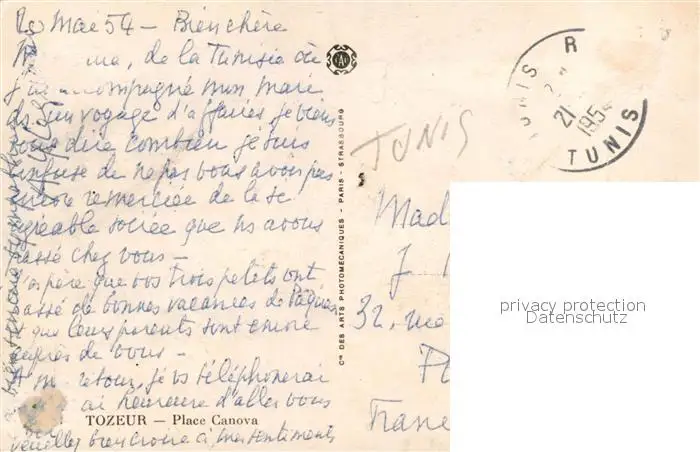 20 Mai 54 - Bien chère
M ma, de la Tunisie où
j'ai accompagné mon mari
ds un voyage d'affaires je viens
vous dire combien je suis
confuse de ne pas vous avoir pas
encore remerciée de la si
agréable soirée que ns avons
passé chez vous -
J'espère que vos trois petits ont
passé de bonnes vacances de Pâques,
et que leurs parents sont encore
auprès de vous -
A m retour, je vs téléphonerai
ai heureuse d'aller vous
TOZEUR — Place Canova
veuillez bien croire à mes sentiments
Cie DES ARTS PHOTOMÉCANIQUES - PARIS - STRASBOURG
TUNIS
TUNIS R
21
1954
TUNIS
Mad
J
32, rue
France
privacy protection
Datenschutz